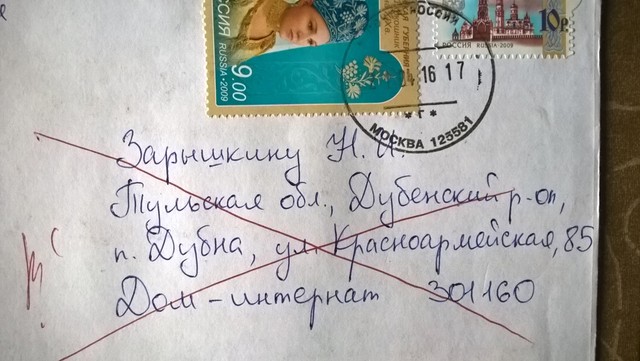 РОССИЯ RUSSIA·2009
9.00
РОССИЯ RUSSIA·2009
10р
РОССИЯ
16 17
*Г*
МОСКВА 125581
Зарышкину Н. И.
Тульская обл., Дубенский р-он,
п. Дубна, ул. Красноармейская, 85
Дом-интернат 301160